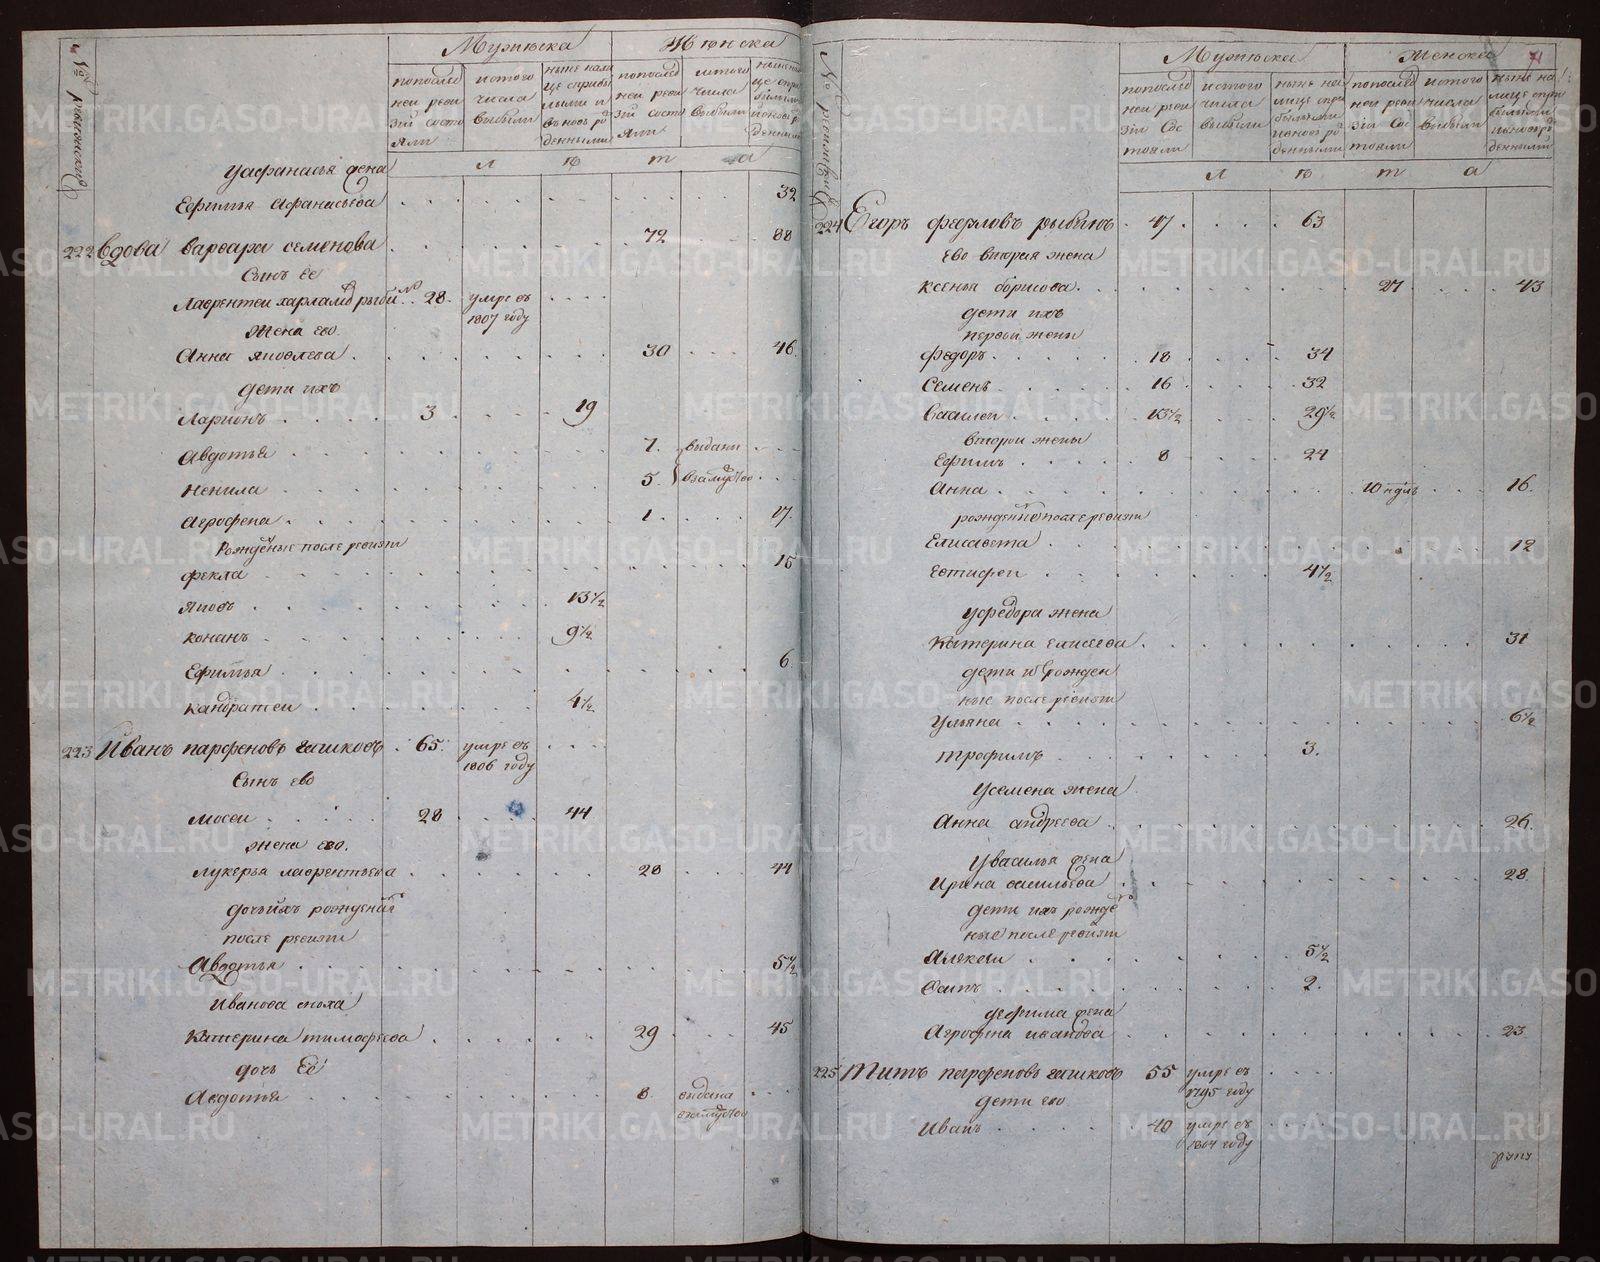 № ревижския
Мужеска
Женска
попослед
ней реви
зїи состо
яли
истого
числа
выбыли
ныне нали
це с прибы
лыми и
вновь ро
жденными
попослед
ней реви
зїи состо
яли
истого
числа
выбыли
л е т а
Уафанасья жена
Ефимья Афанасьева 32
222 Вдова варвара семенова 72 88
Сынъ Ее
Лаврентеи харламовъ рыбинъ 28 умре въ
1807 году
жена ево
Анна яковлева 30 46
дети ихъ
Ларионъ 3 19
Авдотья 7 выданы
Ненила 5 взамужство
Агрофена 1 17
Рожденые после ревизїи
фекла 15
яковъ 13½
кононъ 9½
Ефимья 6
кандратеи 4½
223 Иванъ парфеновъ гашковъ 65 умре въ
1806 году
Сынъ ево
Мосеи 28 44
жена ево
лукерья лаврентьева 28 44
дочь ихъ рожденная
после ревизїи
Авдотья 5½
Иванова сноха
Катерина тимофеева 29 45
дочь Ее
Авдотья 8 выдана
взамужство
Мужеска
Женска
71
попослед
ней реви
зїи сос
тояли
истого
числа
выбыли
ныне на
лице с при
былыми
и вновь ро
жденными
попослед
ней реви
зїи сос
тояли
истого
числа
выбыли
ныне на
лице с при
былыми
и вновь ро
жденными
л е т а
224 Егоръ федоровъ рыбинъ 47 63
ево вторая жена
ксенья борисова 27 43
дети ихъ
первой жены
федоръ 18 34
семенъ 16 32
василеи 13½ 29½
второи жены
Ефимъ 8 24
Анна 10 ндль 16
рожденые после ревизїи
Елисавета 12
Евтифеи 4½
Уфедора жена
Катерина елисеева 31
дети ихъ рожден
ные после ревизїи
Ульяна 6½
трофимъ 3
Усемена жена
Анна андреева 26
Увасилья жена
Ирина васильева 28
дети ихъ рожде
ные после ревизїи
Алексеи 5½
Осипъ 2
Уефима жена
Агрофена иванова 23
225 Титъ парфеновъ гашковъ 55 умре въ
1795 году
дети ево
Иванъ 40 умре въ
1804 году
METRIKI.GASO-URAL.RU